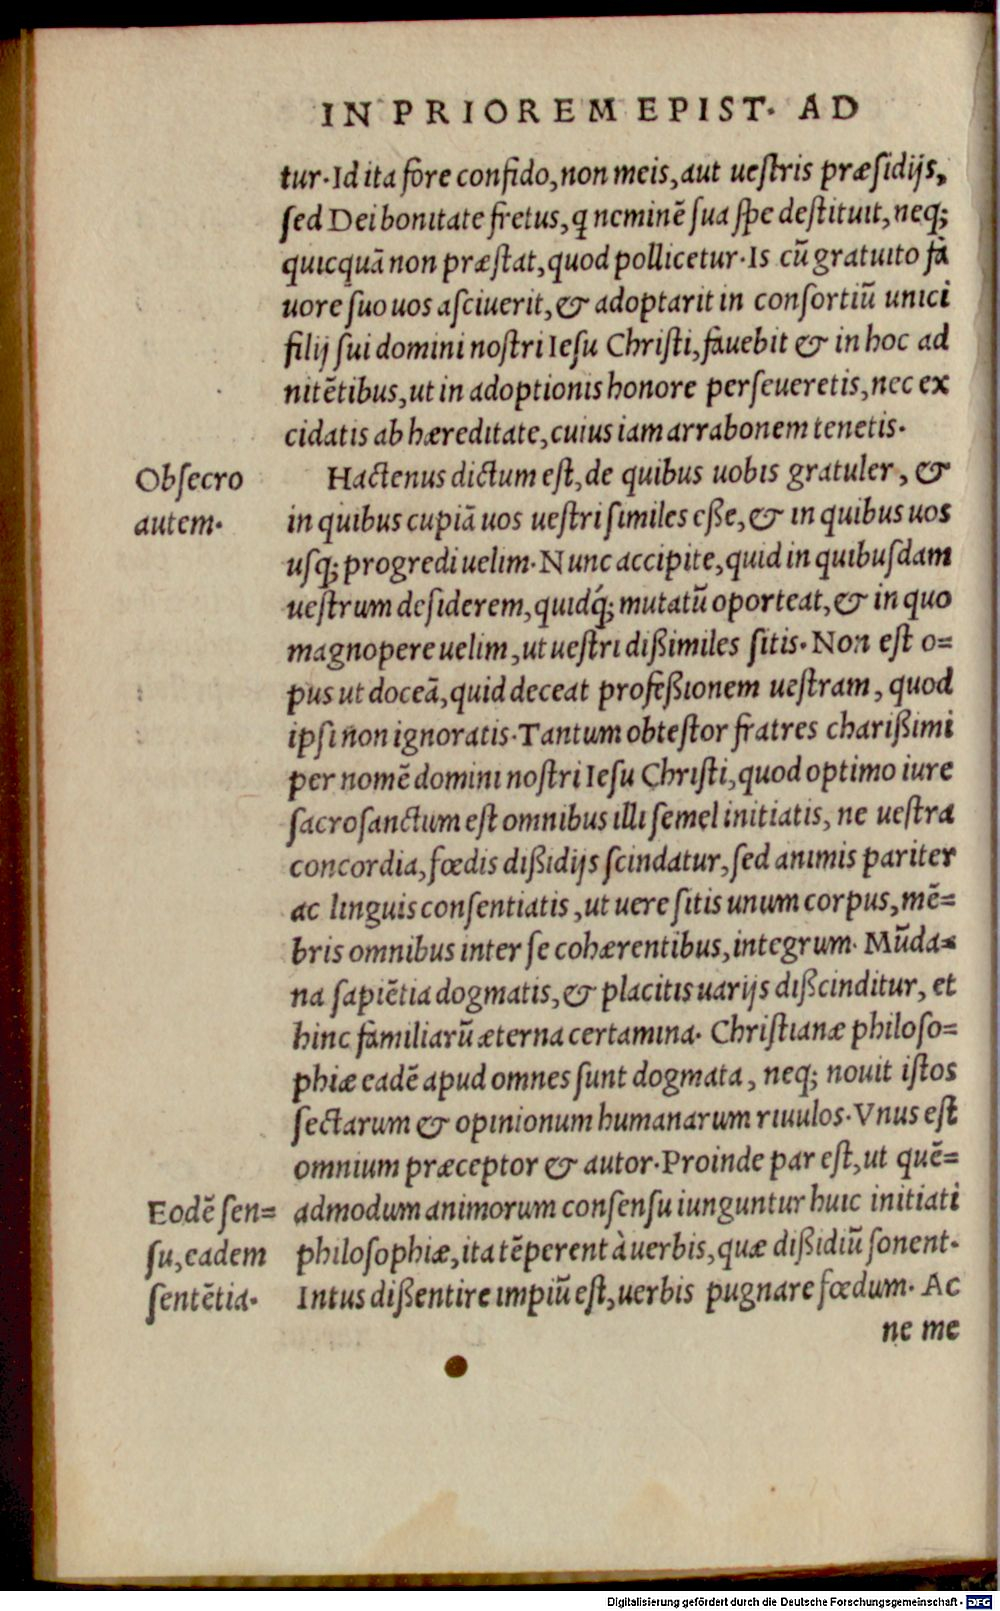 IN PRIOREM EPIST. AD
tur. Id ita fore confido, non meis, aut uestris præsidijs,
sed Dei bonitate fretus, q neminē sua spe destituit, neq;
quicquā non præstat, quod pollicetur. Is cū gratuito fa
uore suo uos asciuerit, & adoptarit in consortiū unici
filij sui domini nostri Iesu Christi, fauebit & in hoc ad
nitētibus, ut in adoptionis honore perseueretis, nec ex
cidatis ab hæreditate, cuius iam arrabonem tenetis.
Obsecro
autem.
Hactenus dictum est, de quibus uobis gratuler, &
in quibus cupiā uos uestri similes eße, & in quibus uos
usq; progredi uelim. Nunc accipite, quid in quibusdam
uestrum desiderem, quidq́; mutatū oporteat, & in quo
magnopere uelim, ut uestri dißimiles sitis. Non est o=
pus ut doceā, quid deceat profeßionem uestram, quod
ipsi non ignoratis. Tantum obtestor fratres charißimi
per nomē domini nostri Iesu Christi, quod optimo iure
sacrosanctum est omnibus illi semel initiatis, ne uestra
concordia, fœdis dißidijs scindatur, sed animis pariter
ac linguis consentiatis, ut uere sitis unum corpus, mē=
bris omnibus inter se cohærentibus, integrum. Mūda=
na sapiētia dogmatis, & placitis uarijs dißcinditur, et
hinc familiarū æterna certamina. Christianæ philoso=
phiæ eadē apud omnes sunt dogmata, neq; nouit istos
sectarum & opinionum humanarum riuulos. Vnus est
omnium præceptor & autor. Proinde par est, ut quē=
admodum animorum consensu iunguntur huic initiati
philosophiæ, ita tēperent à uerbis, quæ dißidiū sonent.
Intus dißentire impiū est, uerbis pugnare fœdum. Ac
Eodē sen=
su, eadem
sentētia.
ne me
Digitalisierung gefördert durch die Deutsche Forschungsgemeinschaft - DFG